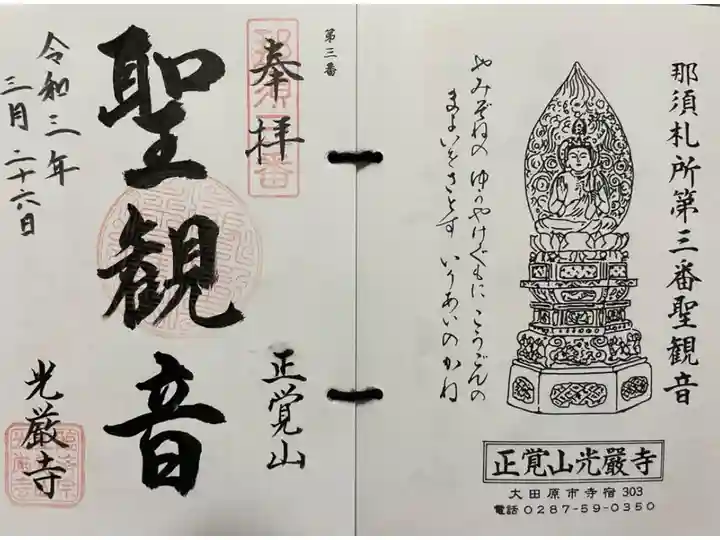 那須札所第三番聖観音
やみぞねの ゆうやけぐもに こうごんの
まよいをさとす いりあいのかね
正覚山光嚴寺
大田原市寺宿303
電話0287-59-0350
第三番
奉拝
聖観音
正覚山
光厳寺
令和三年
三月二十六日